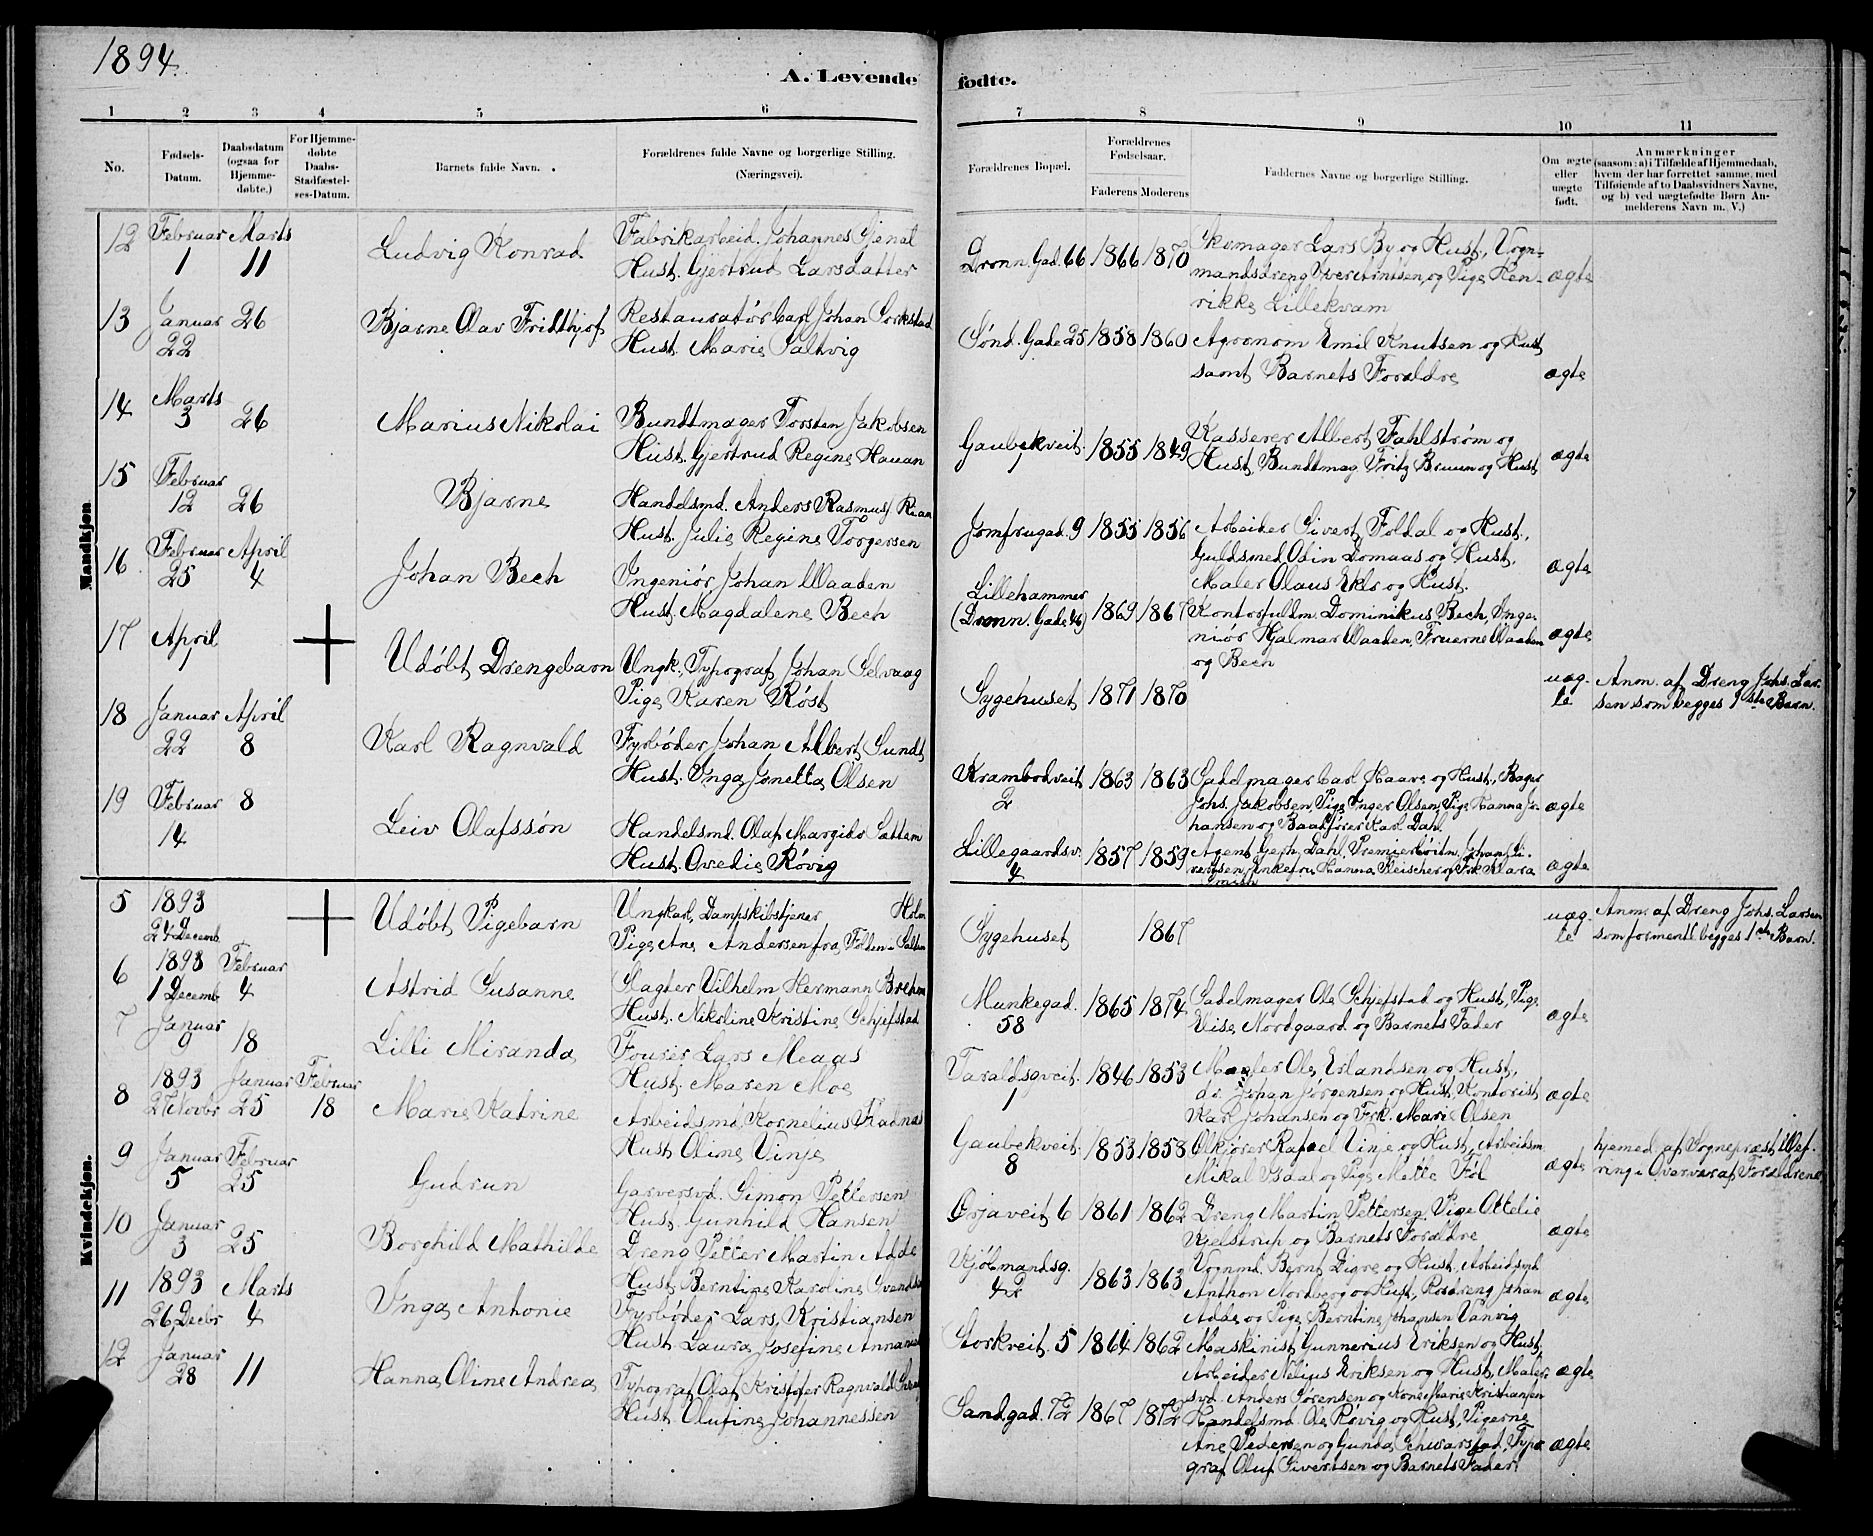 1894.
A. Levende fødte.
1 2 3 4 5 6 7 8 9 10 11
No.
Fødsels-
Datum.
Daabsdatum
(ogsaa for
Hjemme-
døbte.)
For Hjemme-
døbte
Daabs-
Stadfæstel-
ses-Datum.
Barnets fulde Navn.
Forældrenes fulde Navne og borgerlige Stilling.
(Næringsvei).
Forældrenes Bopæl.
Forældrenes
Fødselsaar.
Faderens Moderens
Faddernes Navne og borgerlige Stilling.
Om ægte
eller
uægte
født.
Anmærkninger
(saasom: a) i Tilfælde af Hjemmedaab,
hvem der har forrettet samme, med
Tilføiende af to Daabsvidners Navne,
og b) ved uægtefødte Børn An-
melderens Navn m. V.)
Mandkjøn
12 Februar 1 Marts 11 Ludvig Konrad
Fabrikarbeid. Johannes Gjenal
Hust. Gjertrud Larsdatter
Dronn. Gad. 66 1866 1870
Skomager Lars By og Hust, Vogn-
mandsdreng Iver Arntsen, og Pige Hen-
rikke Lillekvam
ægte
13 Januar 22 26 Bjarne Olav Fridthjof
Restauratør Carl Johan Sorkstad
Hust. Marie Saltvig
Sønd. Gade 25 1858 1860
Agronom Emil Knutsen og Hust
samt Barnets Forældre
ægte
14 Marts 3 26 Marius Nikolai
Bundtmager Torsten Jakobsen
Hust. Gjertrud Regine Hauan
Gaubekveit. 1855 1849
Kasserer Albert Fahlstrøm og
Hust, Bundtmag Fritz Bruun og Hust
ægte
15 Februar 12 26 Bjarne
Handelsmd. Anders Rasmus Rian
Hust. Julie Regine Torgersen
Jomfrugad. 9 1855 1856
Arbeider Sivert Foldal og Hust.,
Guldsmed Odin Domaas og Hust,
Maler Olaus Ekle og Hust.
ægte
16 Februar 25 April 4 Johan Bech
Ingeniør Johan Waaden
Hust. Magdalene Bech
Lillehammer
(Dronn. Gade 46) 1869 1867
Kontorfuldm. Dominikus Bech, Inge-
niør Hjalmar Waaden, Fruerne Waaden
og Bech
ægte
17 April 1 Udøbt Drengebarn
Ungk., Typograf Johan Selvaag
Pige Karen Røst
Sygehuset 1871 1870
uæg-
te
Anm. af Dreng Johs. Lar-
sen som begges 1ste Barn.
18 Januar 22 April 8 Karl Ragnvald
Fyrbøder Johan Albert Sundt
Hust. Inga Jonetta Olsen
Krambodveit 2 1863 1863
Sadelmager Carl Haare og Hust., Bager
Johs. Jakobsen, Pige Inger Olsen, Pige Hanna Jo-
hansen og Baadfører Karl Dahl
ægte
19 Februar 14 8 Leiv Olafssøn
Handelsmd. Olaf Margido Sættem
Hust. Ovedie Røvig
Lillegaardsv. 4 1857 1859
Agent Gerh. Dahl, Premierløitn. Johan Si-
vertsen, Enkefru Hanna Fleischer og Frk Klara
ægte
Kvindekjøn.
5 1893 24 Decemb. Udøbt Pigebarn
Ungkarl, Dampskibstjener Holm
Pige Ane Andersen fra Folden i Salten
Sygehuset 1867
uæg-
te
Anm. af Dreng Johs. Larsen
som formentl. begges 1ste Barn.
6 1893 1 Decemb Februar 4 Astrid Susanne
Slagter Vilhelm Hermann Brehm
Hust. Nikoline Kristine Schjefstad
Munkegad. 58 1865 1874
Sadelmager Ole Schjefstad og Hust, Pige
Elise Nordgaard og Barnets Fader
ægte
7 Januar 9 18 Lilli Miranda
Fourer Lars Meaas
Hust. Maren Moe
Taraldsgveit. 1 1846 1853
Maaler Ole Erlandsen og Hust,
do. Johan Jørgensen og Hust, Kontorist
Karl Johansen og Frk. Marie Olsen
ægte
8 1893 27 Novbr Januar 25 Februar 18 Marie Katrine
Arbeidsmd. Kornelius Kadnas
Hust. Oline Vinje
Gaubekveit 8 1853 1858
Ølkjører Rafael Vinje og Hust, Arbeidsm
Mikal Isaal og Pige Mette Føl
ægte
hjemed. af Sogneprest Ellef-
ring i Overvær af Forældrene
9 Januar 5 Februar 25 Gudrun
Garversvd. Simon Pettersen
Hust. Gunhild Hansen
Ørjaveit 6 1861 1862
Dreng Martin Pettersen, Pige Ottelie
Kjelstrup og Barnets Forældre
ægte
10 Januar 3 25 Borghild Mathilde
Dreng Petter Martin Adde
Hust. Berntine Karoline Svends
Kjøbmandsg. 42 1863 1863
Vognmd. Bernt Digre og Hust, Arbeidsmd
Anthon Nordberg og Hust, Postdreng Johan
Adde og Pige Berntine Johansen Vanvig
ægte
11 1893 26 Decbr Marts 4 Inga Antonie
Fyrbøder Lars Kristiansen
Hust. Laura Josefine Anna
Storkveit. 5 1864 1862
Maskinist Gunnerius Eriksen og Hust,
Arbeider Nelius Eriksen og Hust, Maler-
svd. Anders Sørensen og Kone Marie Kristiansen
ægte
12 Januar 28 11 Hanna Oline Andrea
Typograf Olaf Kristofer Ragnvald
Hust. Olufine Johannessen
Sandgad. 72 1867 1872
Handelsmd. Ole Røvig og Hust, Pigerne
Ane Pedersen og Gunda Schwarstad, Typo-
graf Oluf Sivertsen og Barnets Fader
ægte